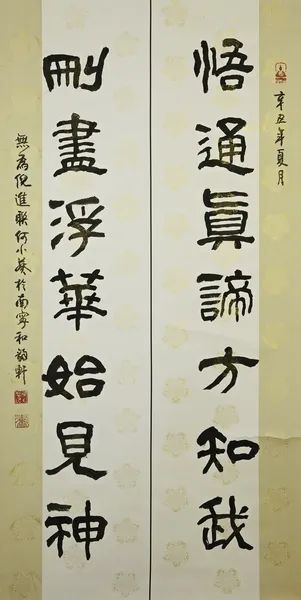 辛丑年夏月
悟通真諦方知我
刪盡浮華始見神
無為倪進联何小葵於南寧和韵軒